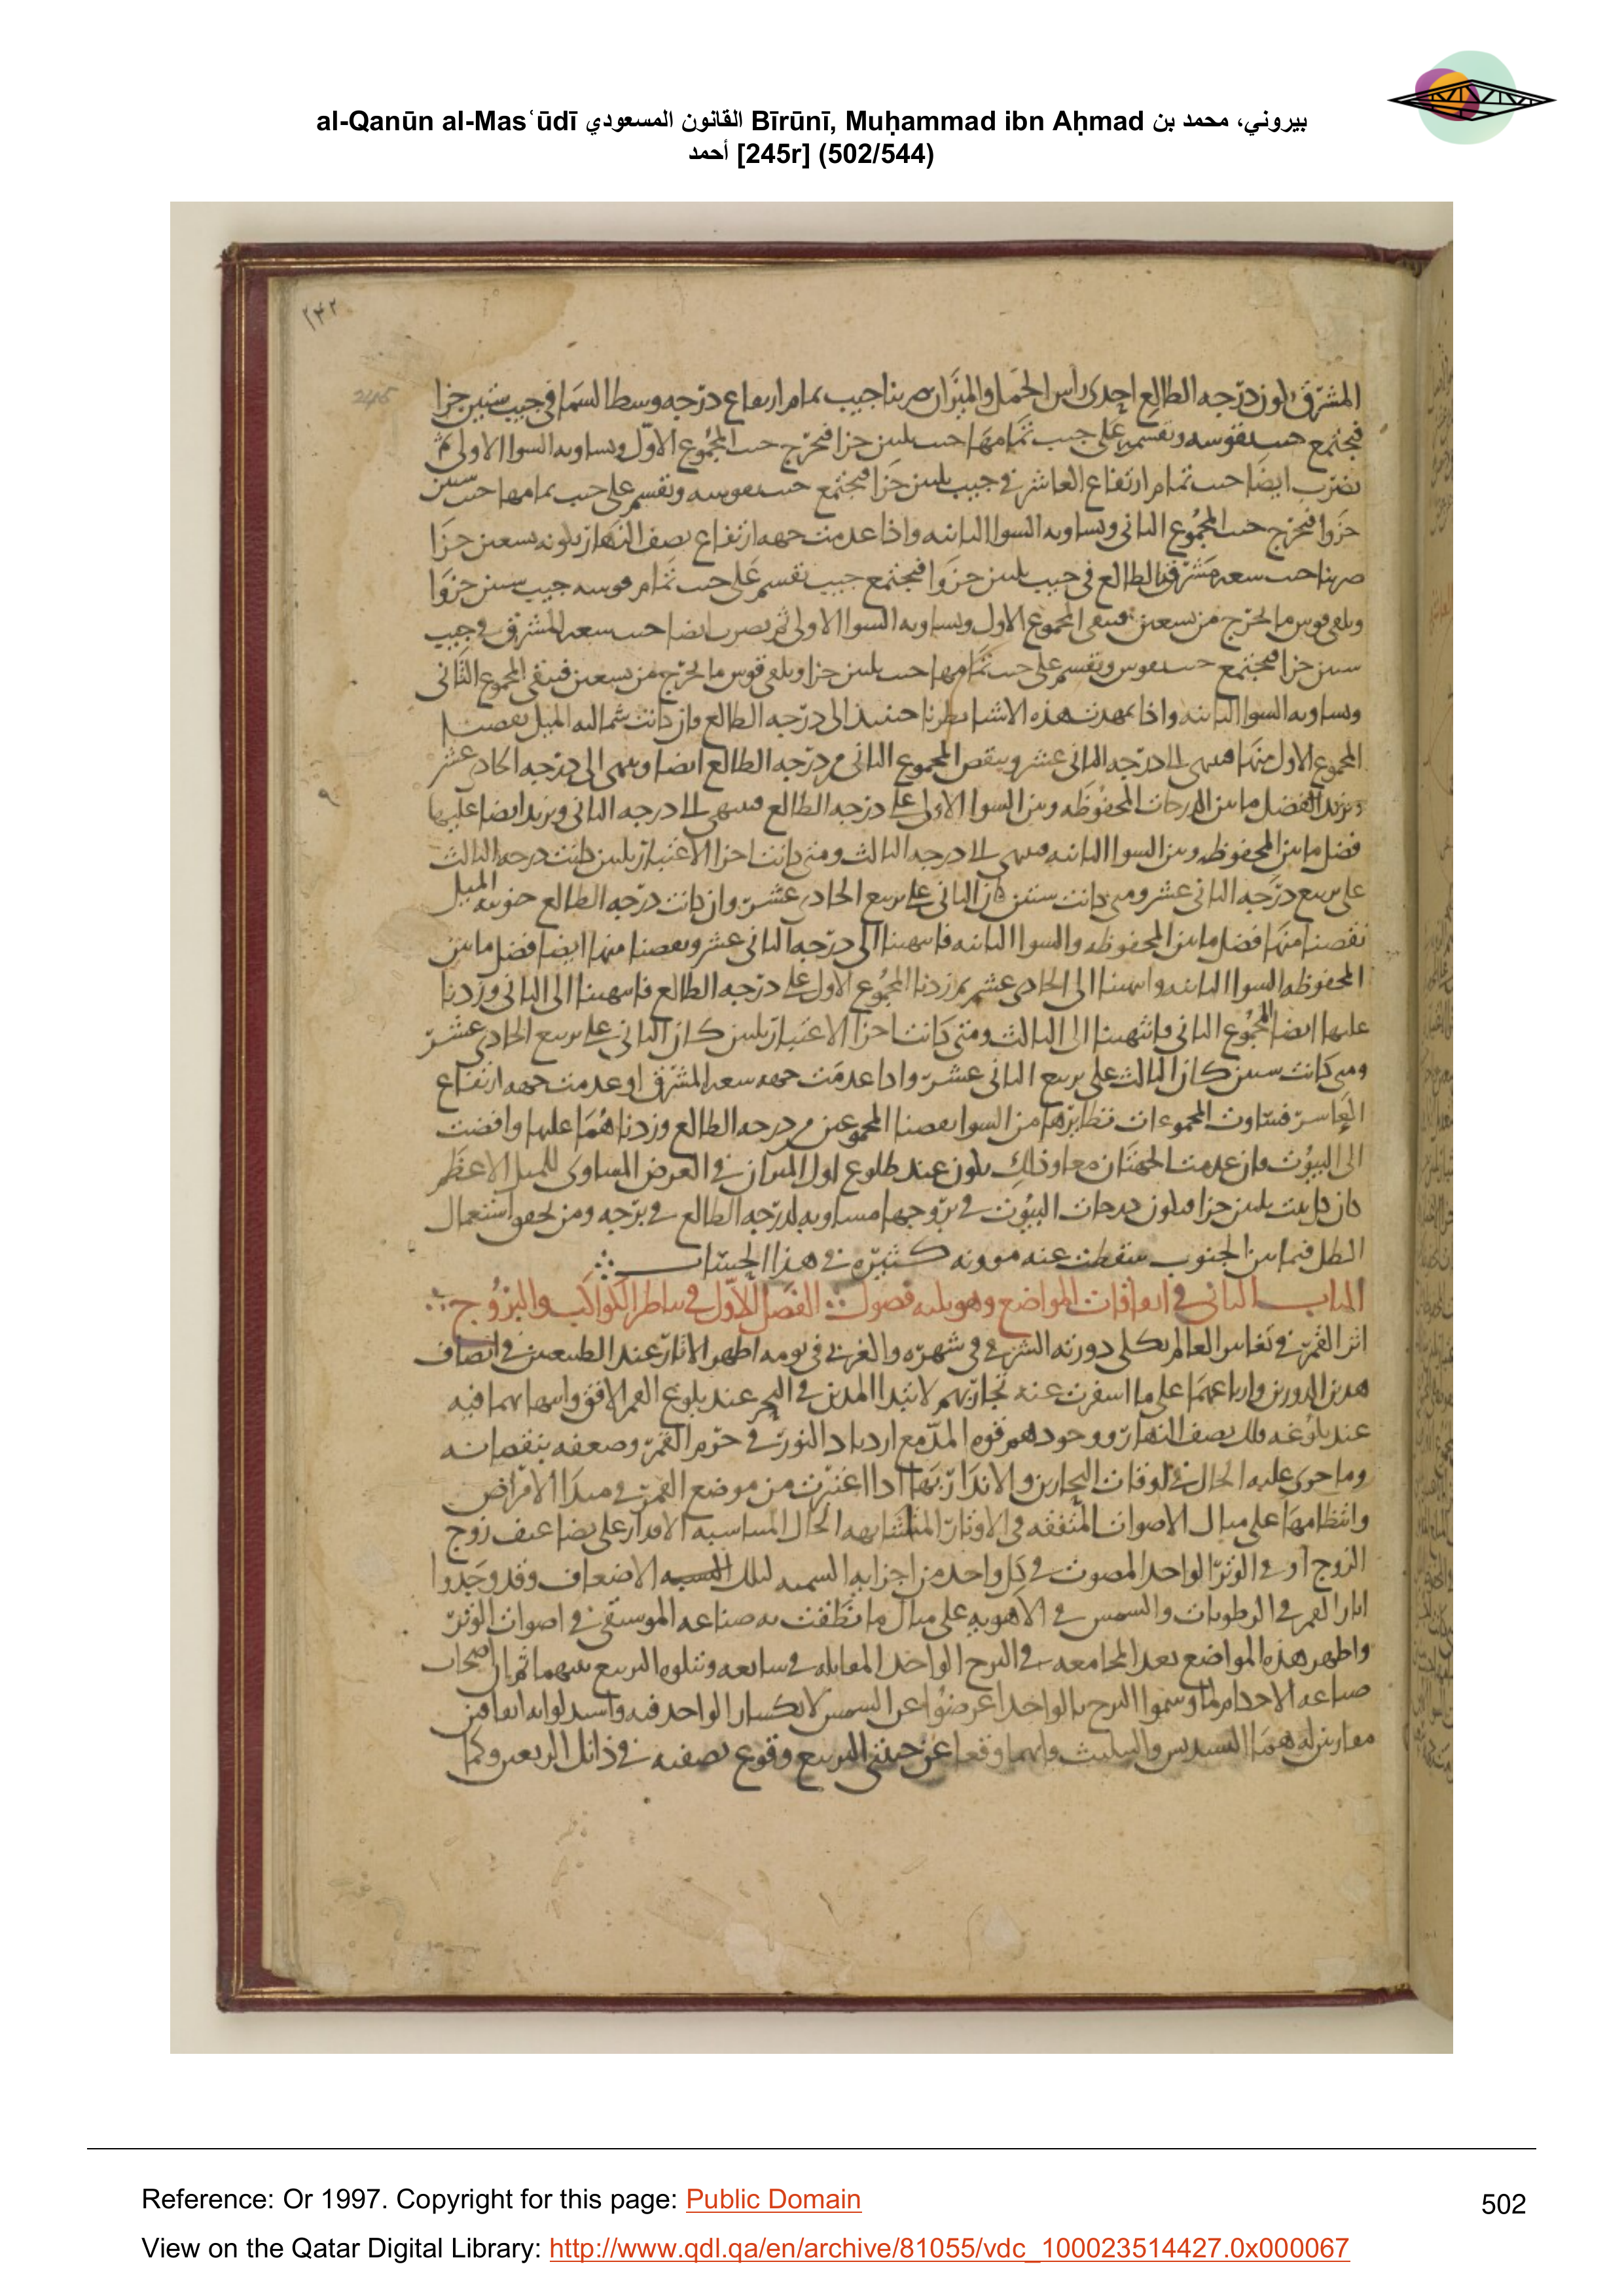 al-Qanūn al-Masʿūdī القانون المسعودي Bīrūnī, Muḥammad ibn Aḥmad بيروني، محمد بن
أحمد [245r] (502/544)
٢٤٢
245
المشرق لكون درجه الطالع احدى راس الحمل والميزان ضربنا جيب تمام ارتفاع درجه وسط السما في جيب ستين جزا
فيجتمع جيب نقوسه ونقسمه على جيب تمامها جيب ثلثين جزا فيخرج جيب المجموع الاول ويساويه السوا الاولى ثم
نضرب ايضا جيب تمام ارتفاع العاشر في جيب ثلثين جزا فيجتمع جيب نقوسه ونقسم على جيب تمامها جيب ستين
جزوا فيخرج جيب المجموع الثاني ويساويه السوا الثانيه واذا عدمت جهه ارتفاع نصف النهار بكونه تسعين جزا
ضربنا جيب سعه مشرق الطالع في جيب ثلثين جزوا فيجتمع جيب نقسم على جيب تمام قوسه جيب ستين جزوا
ونلقي قوس ما يخرج من تسعين فيبقى المجموع الاول ويساويه السوا الاولى ثم نضرب ايضا جيب سعه المشرق في جيب
ستين جزا فيجتمع جيب نقوس ونقسم على جيب تمامها جيب ثلثين جزا ونلقي قوس ما يخرج من تسعين فيبقى المجموع الثاني
ويساويه السوا الثانيه واذا تمهدت هذه الاشيا نظرنا حينئذ الى درجه الطالع فان كانت شماليه الميل نقصنا
المجموع الاول منها فينتهي الى درجه الثاني عشر وينقص المجموع الثاني من درجه الطالع ايضا وينتهي الى درجه الحادي عشر
ونزيد الفضل ما بين الدرجات المحفوظه وبين السوا الاولى على درجه الطالع فينتهي الى درجه الثاني ونزيد ايضا عليها
فضل ما بين المحفوظه وبين السوا الثانيه فينتهي الى درجه الثالث ومتى كانت اجزا الاعتبار ثلثين كانت درجه الثالث
على تربيع درجه الثاني عشر ومتى كانت ستين كان الثاني على تربيع الحادي عشر وان كانت درجه الطالع جنوبيه الميل
نقصنا منها فضل ما بين المحفوظه والسوا الثانيه فانتهينا الى درجه الثاني عشر ونقصنا منها ايضا فضل ما بين
المحفوظه السوا الثانيه وانتهينا الى الحادي عشر ثم زدنا المجموع الاول على درجه الطالع فانتهينا الى الثاني وزدنا
عليها ايضا المجموع الثاني فانتهينا الى الثالث ومتى كانت اجزا الاعتبار ثلثين كان الثاني على تربيع الحادي عشر
ومتى كانت ستين كان الثالث على تربيع الثاني عشر واذا عدمت جهه سعه المشرق او عدمت جهه ارتفاع
العاشر فتساوت المجموعات نظايرها من السوا نقصنا المجموعين من درجه الطالع وزدناهما عليها وافضت
الى البيوت فان عدمت الجهتان معا وذلك يكون عند طلوع اول الميزان في العرض المساوي للميل الاعظم
كان كل بيت ثلثين جزا فيكون درجات البيوت في بروجها مساويه لدرجه الطالع في برجه ومن تحقق استعمال
الظل فيما بين الجنوب سقطت عنه موونه كثيره في هذا الحساب
الباب الثاني في اتفاقات المواضع وهو ثلثه فصول الفصل الاول في تناظر الكواكب والبروج
اثر القمر في تغايير العالم بكلي دورته الشرقي في شهره والغربي في يومه اظهر الاثار عند الطبيعيين في انصاف
هذين الدورين وارباعهما على ما اسفرت عنه تجاربهم لابتدا المدين في البحر عند بلوغ القمر الافق وانتهائهما فيه
عند بلوغه فلك نصف النهار ووجودهم قوه المد مع ازدياد النور في جرم القمر وضعفه بنقصانه
وما جرى عليه الحال في اوقات البحارين والانذار بها اذا اعتبرت من موضع القمر في مبدا الامراض
وانتظامها على مثال الاصوات المتفقه في الاوتار المتشابهه الحال المتناسبه الاقدار على تضاعيف زوج
الزوج او في الوتر الواحد المصوت في كل واحد من اجزايه السميه لتلك النسبه الاضعاف وقد وجدوا
اثار القمر في الرطوبات والشمس في الاهويه على مثال ما نطقت به صناعه الموسيقى في اصوات الوتر
واظهر هذه المواضع بعد المجامعه في البرج الواحد المقابله في سابعه وتتلوه التربيع بينهما ثم ان اصحاب
صناعه الاحكام لما وسموا البرج بالواحد اعرضوا عن الشمس لانكسار الواحد فيه
هما التسديس والتثليث وانهما وقعا عن جنبتي التربيع وقوع نصفيه في ذانك الربعين وكما
Reference: Or 1997. Copyright for this page: Public Domain
502
View on the Qatar Digital Library: http://www.qdl.qa/en/archive/81055/vdc_100023514427.0x000067